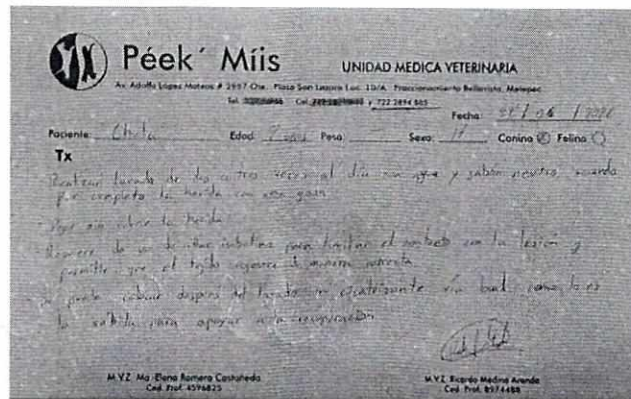 Péek´ Míis
UNIDAD MEDICA VETERINARIA
Av. Adolfo López Mateos # 2957 Ote. Plaza San Lázaro Loc. 10/A. Fraccionamiento Bellavista, Metepec
Tel. Cel. y 722 2894 865
Fecha: / 06 /
Paciente: Edad: Peso: Sexo: H Canino Felino
Tx
Realizar lavado de dos a tres veces al día con agua y jabón neutro, secando
por completo la herida con una gasa
la herida
Requiere de uso de collar isabelino para limitar el contacto con la lesión y
permitir que el tejido regenere de manera correcta
Se puede colocar después del lavado un cicatrizante
la sábila para apoyar a la recuperación
M.V.Z. Ma. Elena Romero Castañeda
Ced. Prof. 4596825
M.V.Z. Ricardo Medina Aranda
Ced. Prof. 8974488